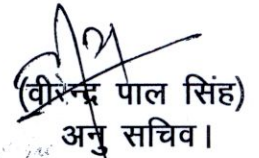 (वीरेन्द्र पाल सिंह)
अनु सचिव।